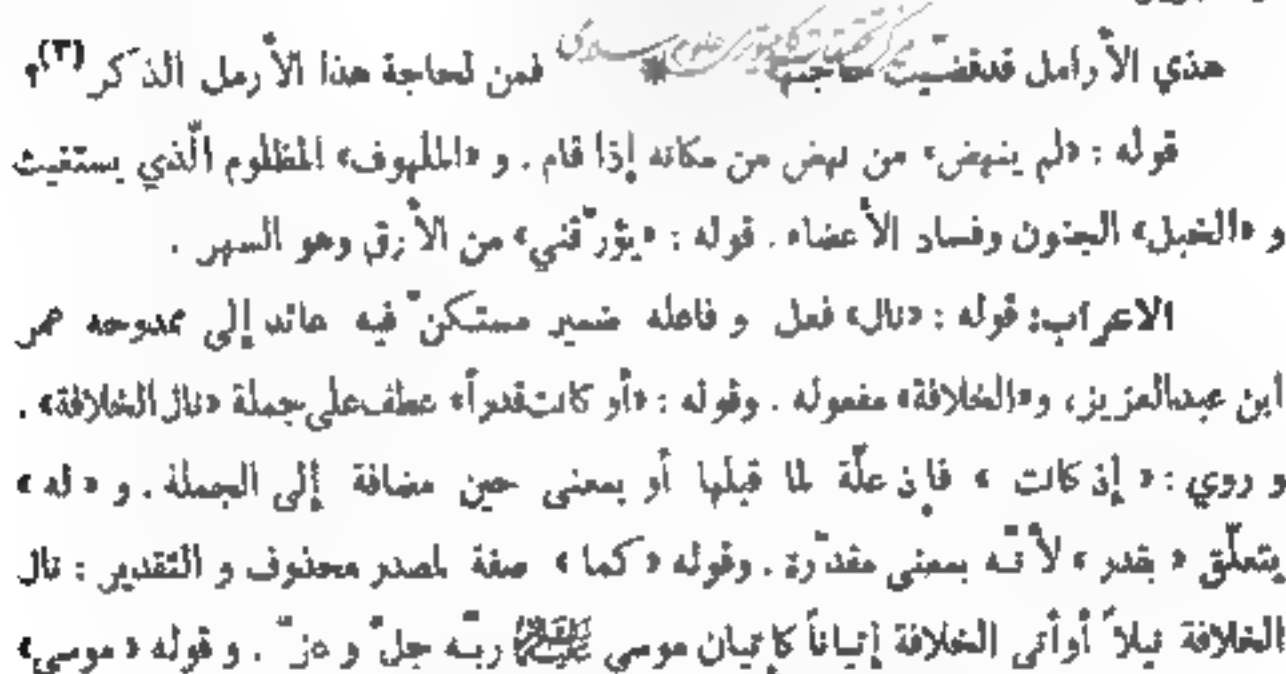 هذي الأرامل قدقضّيت حاجتها * فمن لحاجة هذا الأرمل الذكر (٣)»
قوله : «لم ينهض» من نهض من مكانه إذا قام . و «الملهوف» المظلوم الّذي يستغيث
و «الخبل» الجنون وفساد الأعضاء . قوله : «يؤرّقني» من الأرق وهو السهر .
الاعراب: قوله : «نال» فعل و فاعله ضمير مستكنّ فيه عائد إلى ممدوحه عمر
ابن عبدالعزيز، و«الخلافة» مفعوله . وقوله : «أو كانت‌قدراً» عطف‌على‌جملة «نال‌الخلافة» .
و روي : « إذ كانت » فإ ن علّة لما قبلها أو بمعنى حين مضافة إلى الجملة . و « له »
يتعلّق « بقدر » لأنّه بمعنى مقدّرة . وقوله « كما » صفة لمصدر محذوف و التقدير : نال
الخلافة نيلاً أوأتى الخلافة إتياناً كإتيان موسى عليه السلام ربّه جلّ و عزّ . و قوله « موسى»